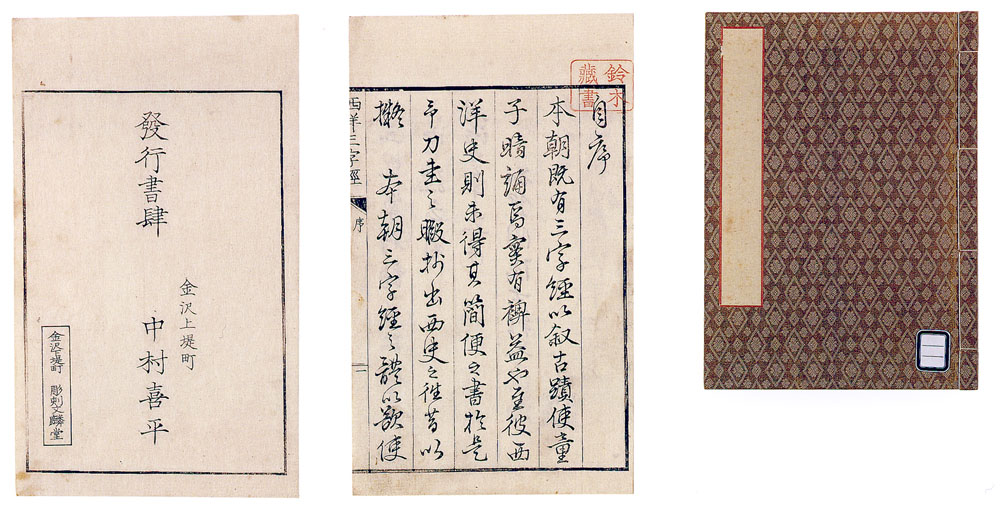 發行書肆
金沢上堤町
中村喜平
金沢上堤町 彫刻文麟堂
鈴木
藏書
自序
本朝既有三字經以叙古蹟使童
子暗誦焉實有裨益也至彼西
洋史則未得其簡便之書於是
予刀圭之暇抄出西史之往昔以
擬 本朝三字經之體以欲使
西洋三字經
序